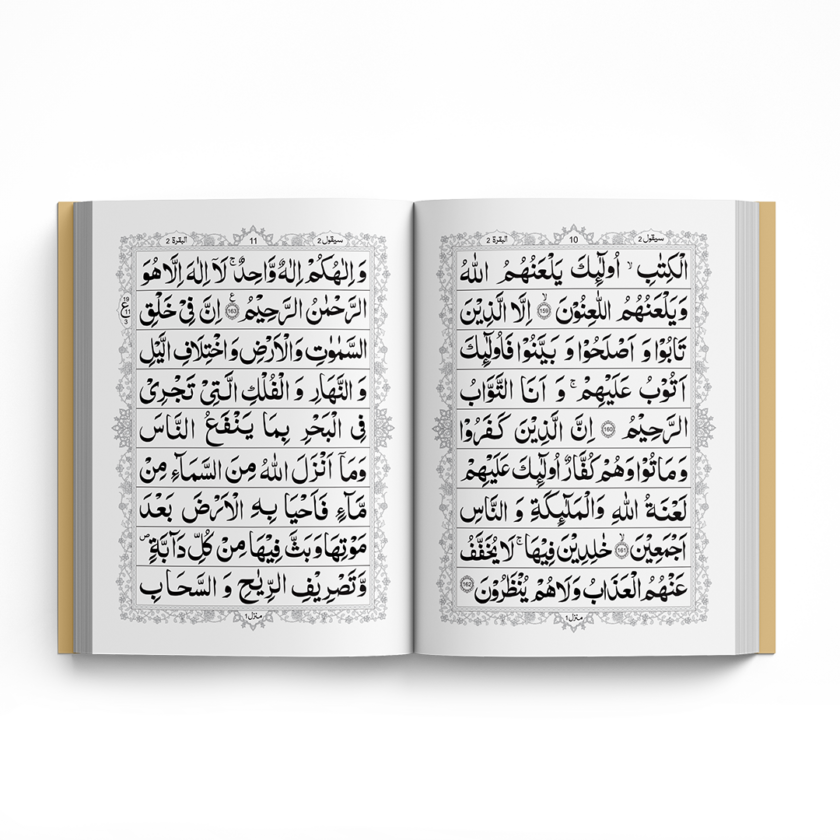 سيقول 2
10
البقرة 2
الْكِتٰبِ ۙ اُولٰٓئِكَ يَلْعَنُهُمُ اللّٰهُ
وَيَلْعَنُهُمُ اللّٰعِنُوْنَ ۙ 159 اِلَّا الَّذِيْنَ
تَابُوْا وَ اَصْلَحُوْا وَ بَيَّنُوْا فَاُولٰٓئِكَ
اَتُوْبُ عَلَيْهِمْ ۚ وَ اَنَا التَّوَّابُ
الرَّحِيْمُ 160 اِنَّ الَّذِيْنَ كَفَرُوْا
وَمَاتُوْا وَهُمْ كُفَّارٌ اُولٰٓئِكَ عَلَيْهِمْ
لَعْنَةُ اللّٰهِ وَالْمَلٰٓئِكَةِ وَ النَّاسِ
اَجْمَعِيْنَ ۙ 161 خٰلِدِيْنَ فِيْهَا ۚ لَا يُخَفَّفُ
عَنْهُمُ الْعَذَابُ وَلَا هُمْ يُنْظَرُوْنَ 162
منزل ١
سيقول 2
11
البقرة 2
وَ اِلٰهُكُمْ اِلٰهٌ وَّاحِدٌ ۚ لَآ اِلٰهَ اِلَّا هُوَ
الرَّحْمٰنُ الرَّحِيْمُ 163 ع اِنَّ فِيْ خَلْقِ
السَّمٰوٰتِ وَالْاَرْضِ وَ اخْتِلَافِ الَّيْلِ
وَ النَّهَارِ وَ الْفُلْكِ الَّتِيْ تَجْرِيْ
فِي الْبَحْرِ بِمَا يَنْفَعُ النَّاسَ
وَمَآ اَنْزَلَ اللّٰهُ مِنَ السَّمَآءِ مِنْ
مَّآءٍ فَاَحْيَا بِهِ الْاَرْضَ بَعْدَ
مَوْتِهَا وَبَثَّ فِيْهَا مِنْ كُلِّ دَآبَّةٍ ۪
وَّتَصْرِيْفِ الرِّيٰحِ وَ السَّحَابِ
منزل ١